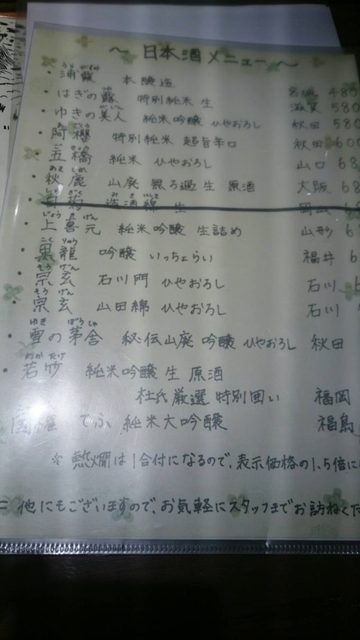 ～ 日本酒メニュー ～
・浦霞 本醸造 宮城 48
・はぎの露 特別純米 生 滋賀 580
・ゆきの美人 純米吟醸 ひやおろし 秋田 580
・阿櫻 特別純米 超旨辛口 秋田 600
・五橋 純米 ひやおろし 山口 6
・秋鹿 山廃 無ろ過 生 原酒 大阪 6
生
上喜元 純米吟醸 生詰め 山形 6
黒龍 吟醸 いっちょらい 福井 6
宗玄 石川門 ひやおろし 石川
宗玄 山田錦 ひやおろし 石川
・雪の茅舎 秘伝山廃 吟醸 ひやおろし 秋田
若竹 純米吟醸 生 原酒
杜氏 厳選 特別囲い 福岡
国権 てふ 純米大吟醸 福島
☆ 熱燗は1合付になるので、表示価格の1.5倍に
他にもございますので、お気軽にスタッフまでお訪ねくだ